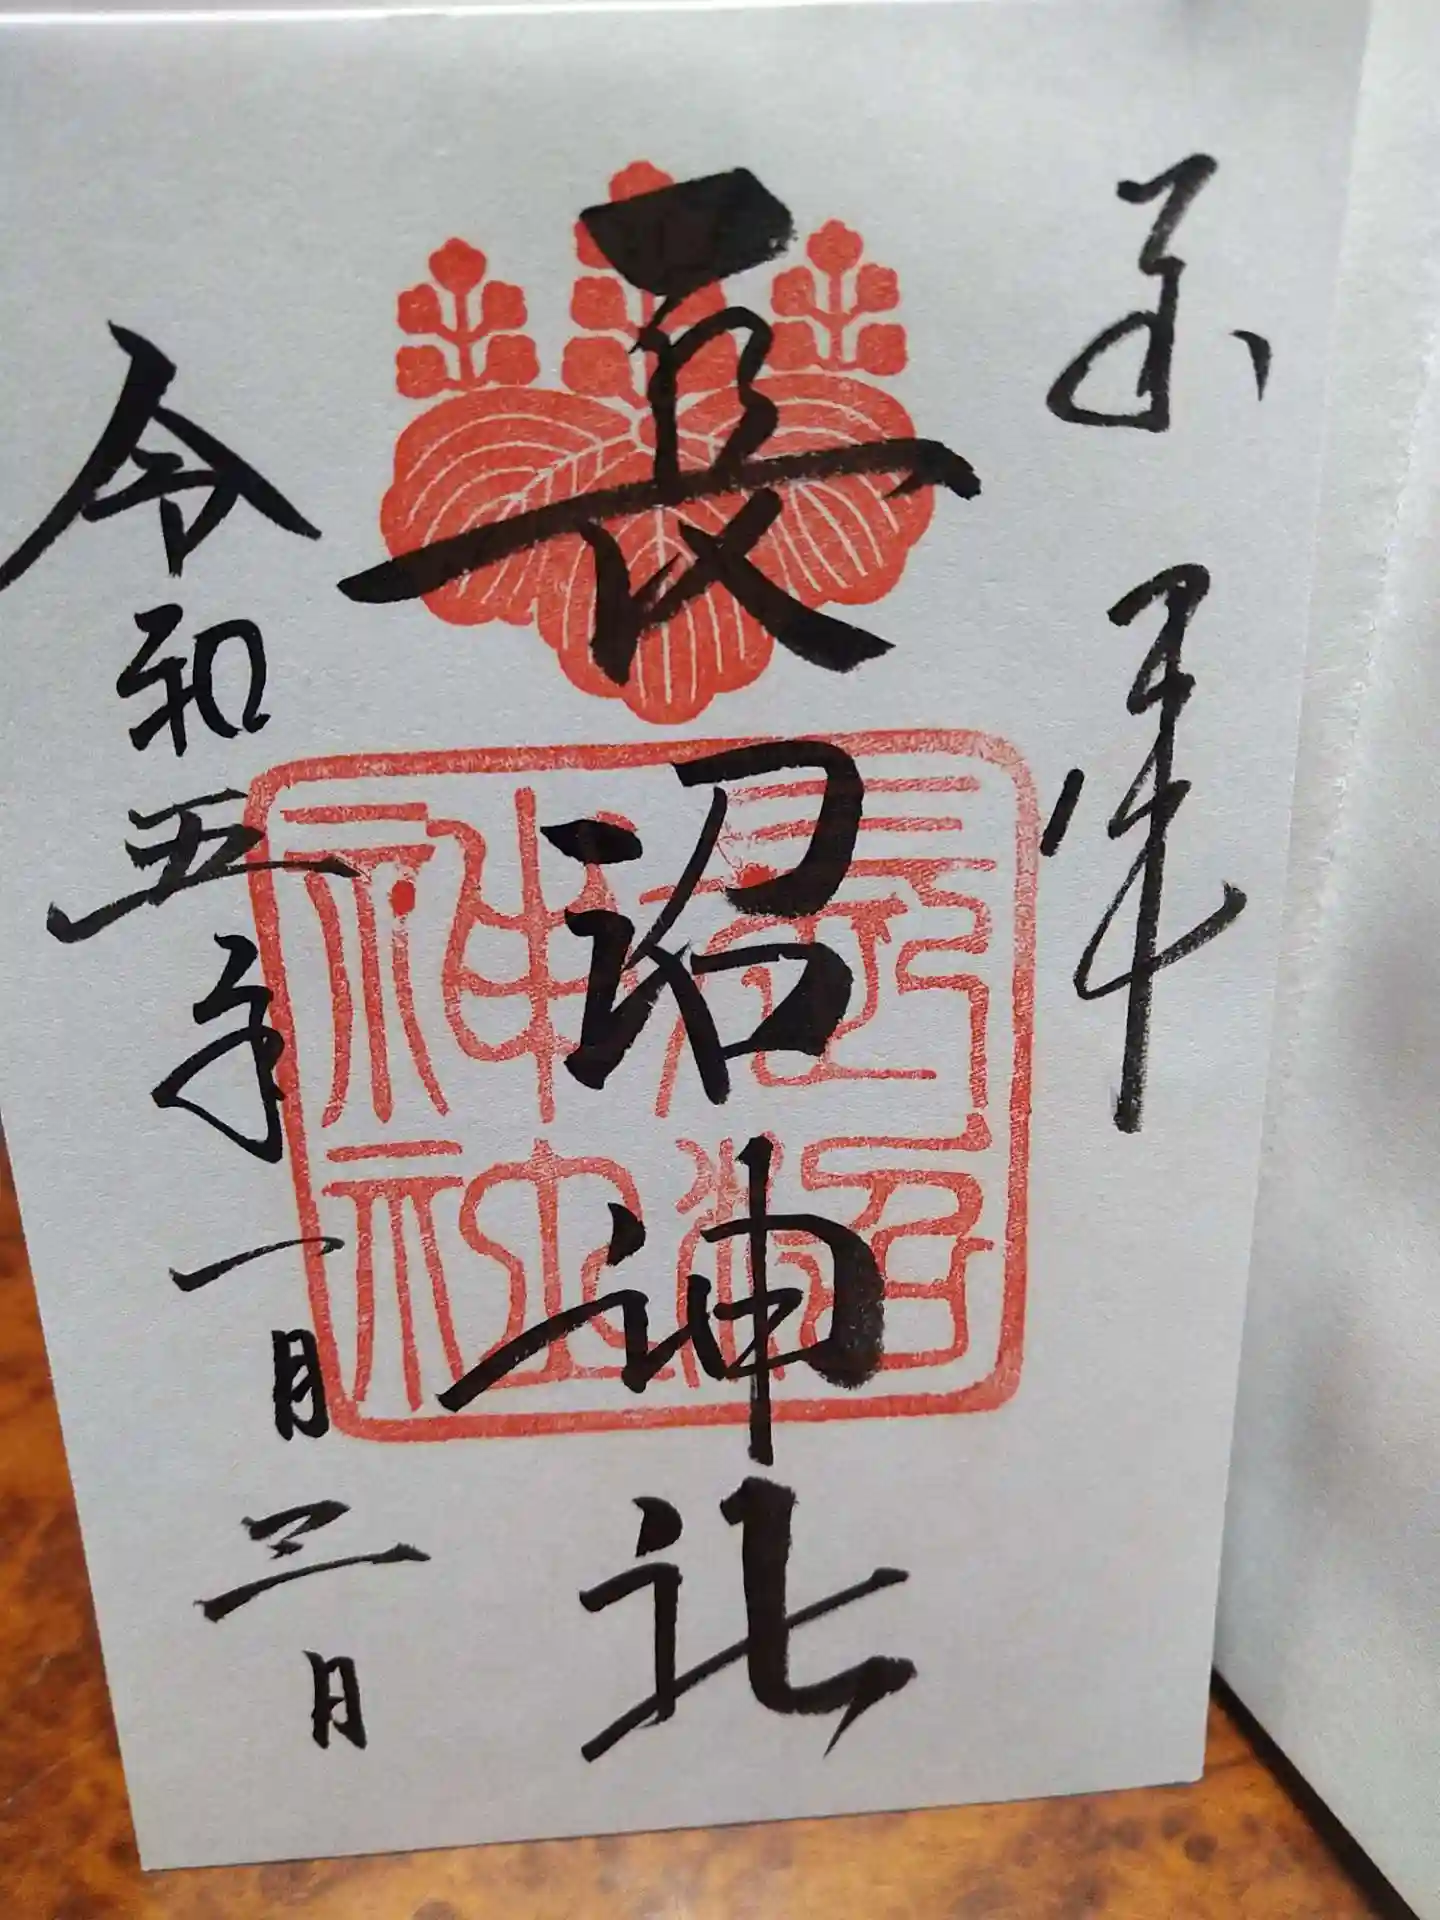 奉拝
長沼神社
令和五年一月三日
長沼
神社